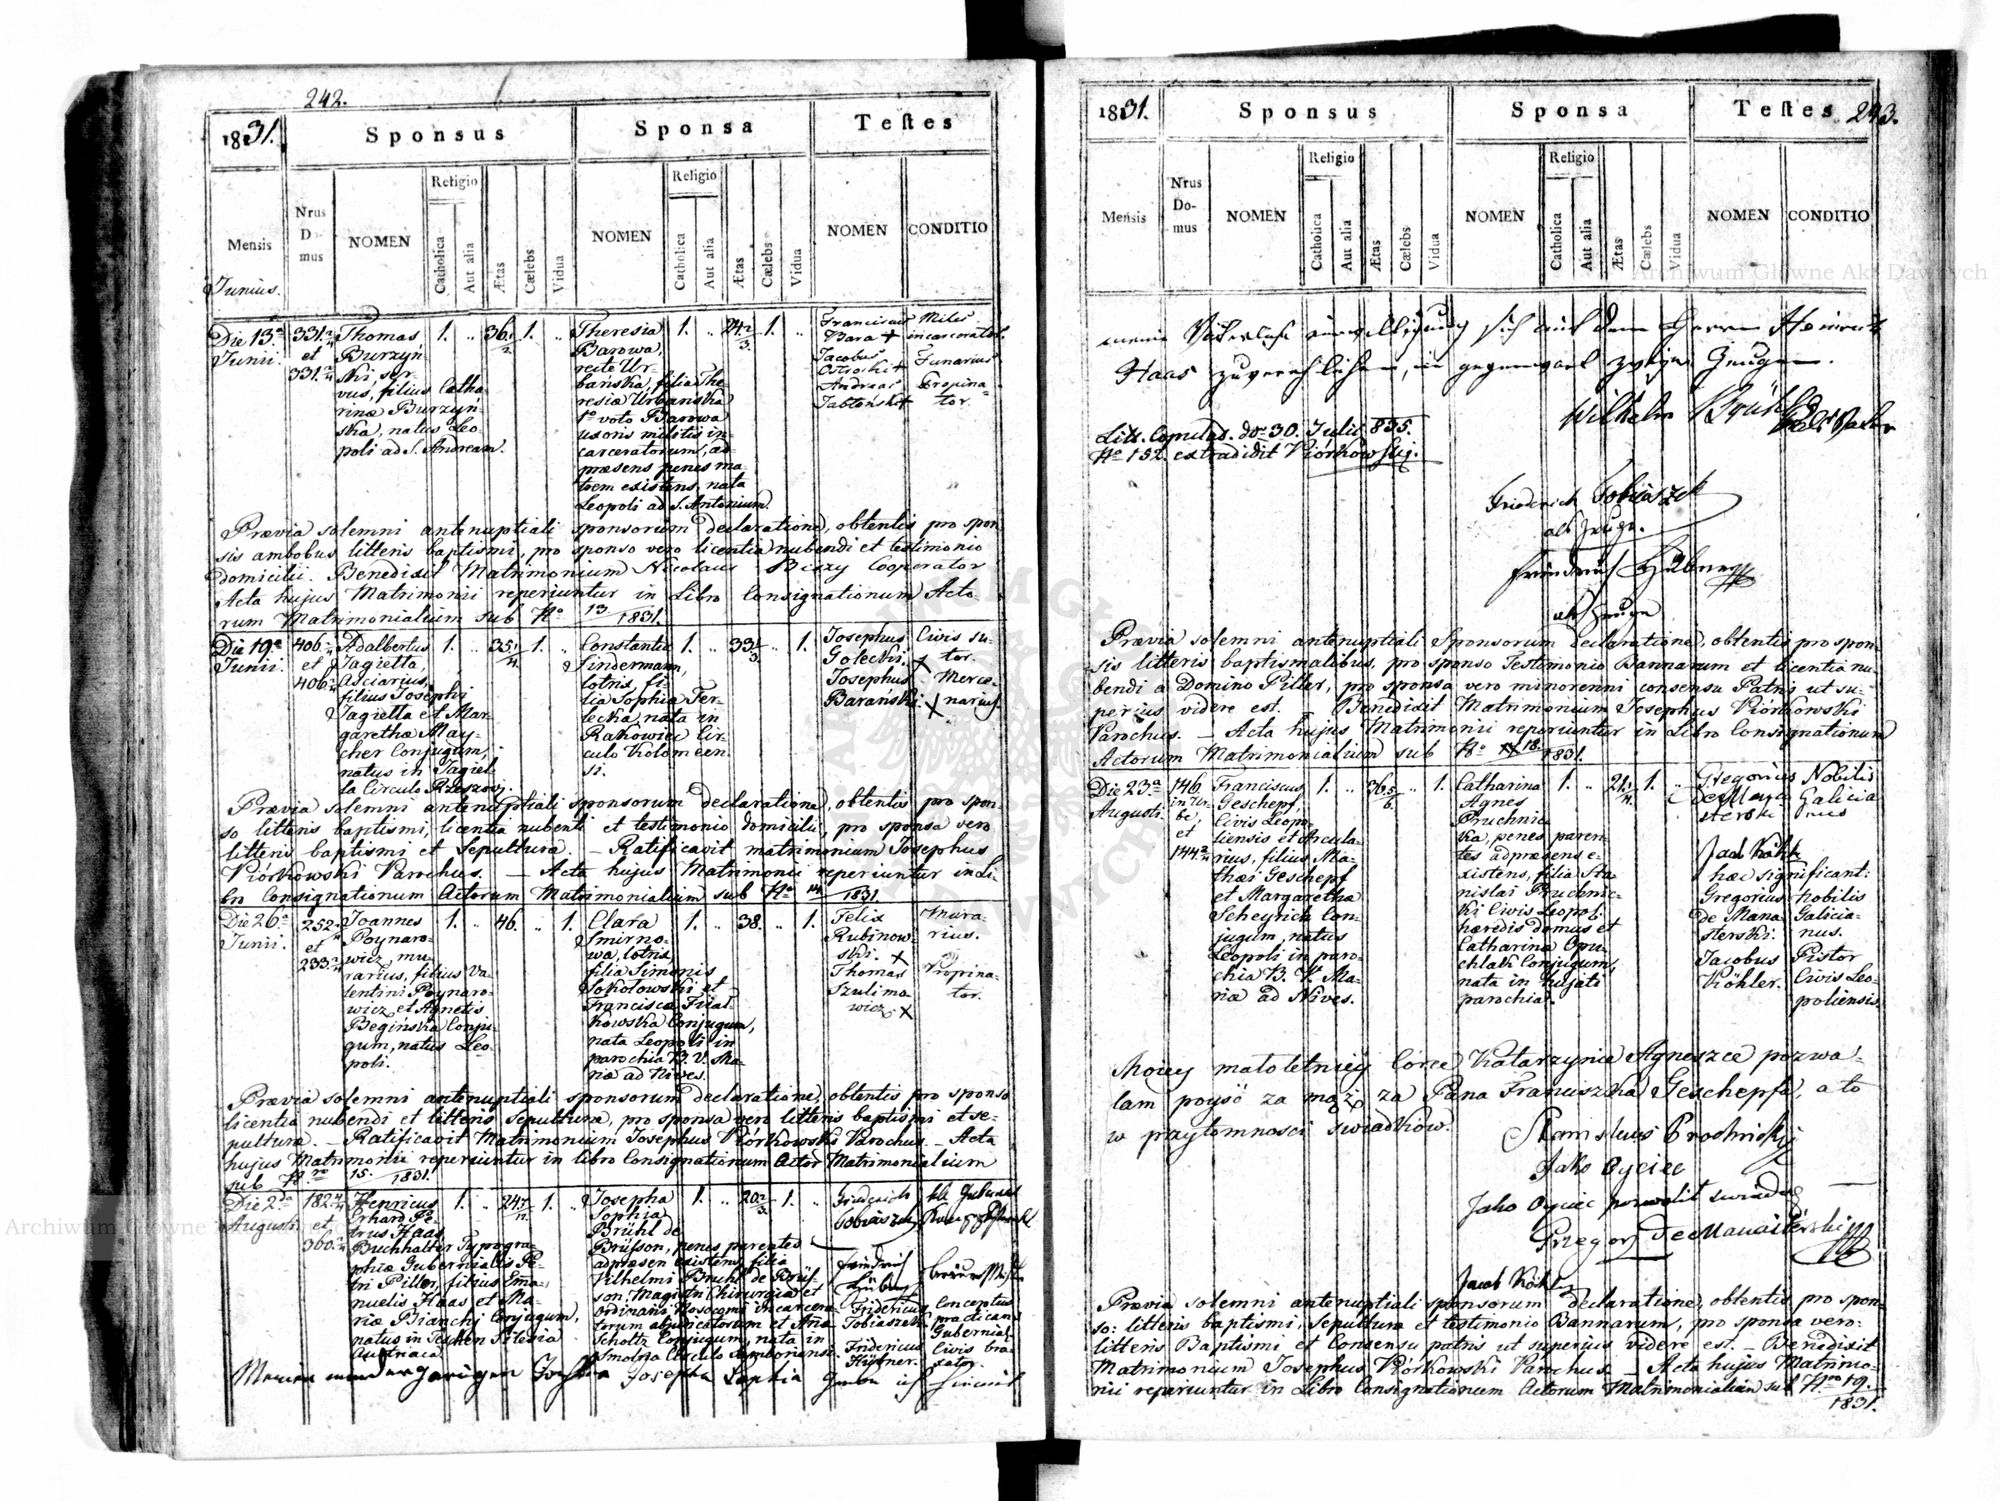 242.
1831.
Sponsus
Sponsa
Teſtes
Mensis
Nrus Domus
NOMEN
Religio
Catholica
Aut alia
Ætas
Cælebs
Vidua
NOMEN
Religio
Catholica
Aut alia
Ætas
Cælebs
Vidua
NOMEN
CONDITIO
Junius.
Die 13ª
Junii.
331 2/4
et
331 2/4
Thomas
Burzyń
ski, ser
vus, filius Catha
rinæ Burzyń
ska, natus Leo
poli ad S. Andream.
1. .. 36 1/2 1. ..
Theresia
Barowa,
recte Ur-
bańska, filia The
resiæ Urbańska
1º voto Barowa
uxoris militis in
carceratorum, ad
præsens penes ma
trem existens, nata
Leopoli ad S. Antonium.
1. .. 24 2/3 1. ..
Franciscus
Bara +
Jacobus
Ostroski +
Andreas
Jabłoński +
Miles
incarcerator.
Funarius
Propina
tor.
Prævia solemni antenuptiali sponsorum declaratione, obtentis pro spon
sis ambobus litteris baptismi, pro sponso vero licentia nubendi et testimonio
domicilii. Benedixit Matrimonium Nicolaus Biszy Cooperator
Acta hujus Matrimonii reperiuntur in Libro Consignationum Acto
rum Matrimonialium sub Nº 13/1831.
Die 19ª
Junii.
406 2/4
et
406 2/4
Adalbertus
Jagiełła,
Asciarius,
filius Josephi
Jagiełła et Mar
garethæ May-
cher Conjugum,
natus in Jagiel
la Circulo Rzeszov:
1. .. 35 1/4 1. ..
Constantia
Lindermann,
lotrix, fi
lia Sophia Ter-
lecka, nata in
Rakowiec Cir-
culo Kolomeen
si.
1. .. 33 1/3 .. 1.
Josephus
Golecki. x
Josephus
Barański. x
Civis su-
tor.
Merce-
narius.
Prævia solemni antenuptiali sponsorum declaratione, obtentis pro spon-
so litteris baptismi, licentia nubendi et testimonio domicilii, pro sponsa vero
litteris baptismi et sepulturæ. — Ratificavit matrimonium Josephus
Piórkowski Parochus. — Acta hujus Matrimonii reperiuntur in Li
bro Consignationum Actorum Matrimonialium sub Nº 14/1831.
Die 26ª
Junii.
252 2/4
et
233 2/4
Joannes
Poynaro-
wicz, mu
rarius, filius Va
lentini Poynaro
wicz et Agnetis
Begińska Conju
gum, natus Leo
poli.
1. .. 46. .. 1.
Clara
Smirno-
wa, lotrix,
filia Simonis
Sokołowski et
Francisca Fiiał
kowska Conjugum,
nata Leopoli in
parochia B. V. Ma
riæ ad Nives.
1. .. 38. .. 1.
Felix
Rubinow-
ski. x
Thomas
Szulimo
wicz. x
Mura-
rius.
Propina-
tor.
Prævia solemni antenuptiali sponsorum declaratione, obtentis pro sponso
licentia nubendi et litteris sepulturæ, pro sponsa vero litteris baptismi et se-
pulturæ. — Ratificavit Matrimonium Josephus Piórkowski Parochus. — Acta
hujus Matrimonii reperiuntur in libro Consignationum Actor Matrimonialium
sub Nro 15./1831.
Die 2da
Augusti.
182 4/4
et
360 2/4
Henricus
Erhard Pe
trus Haas
Buchhalter Typogra-
phiæ Gubernialis Pe-
tri Piller, filius Ema-
nuelis Haas et Ma-
riæ Bianchi Conjugum,
natus in Teschen Silesia
Austriaca
1. .. 24 7/12 1. ..
Josepha
Sophia
Brühl de
Brüsson, penes parentes
adpræsen existens, filia
Vilhelmi Bruhl de Brüs-
son. Magistri Chirurgiæ et
Ordinarii Nosocomi incarcera
torum abjudicatorum et Annæ
Scholtz Conjugum, nata in
Smolna Circulo Samboriensi.
1. .. 20 2/3 1. ..
Friderich
Tobiaszek
Friedrich
Hübner
Fridericus
Tobiaszek
Fridericus
Hübner.
Conceptus
practicans
Gubernial.
Civis bra-
xator.
Meiner minderjärigen Tochter Josepha Sophia Gebe ich hiemit
1831.
Sponsus
Sponsa
Teſtes
243.
Mensis
Nrus Domus
NOMEN
Religio
Catholica
Aut alia
Ætas
Cælebs
Vidua
NOMEN
Religio
Catholica
Aut alia
Ætas
Cælebs
Vidua
NOMEN
CONDITIO
meine Väterliche einwilligung sich mit dem Herrn Heinrich
Haas zuverehlichen, in gegenwart zweyer Zeugen.
Wilhelm Brühl
als Vater
Litt. Copulat. ddo 30. Julii 835.
Nº 152. extradidit Piórkowski.
Friderich Tobiaszek
als Zeuge.
Friedrich Hübner
als Zeugen
Prævia solemni antenuptiali Sponsorum declaratione, obtentis pro spon-
sis litteris baptismalibus, pro sponso Testimonio Bannarum et licentia nu-
bendi a Domino Piller, pro sponsa vero minorenni consensu Patris ut su-
perius videre est. — Benedixit Matrimonium Josephus Piórkowski
Parochus. — Acta hujus Matrimonii reperiuntur in Libro Consignationum
Actorum Matrimonialium sub Nº 18/1831.
Die 23ª
Augusti.
146.
in ur-
be,
et
144 2/4
Franciscus
Geschepf,
Civis Leopo-
liensis et Arcula-
rius, filius Ma-
thæi Geschepf
et Margaretha
Scheyrich Con-
jugum, natus
Leopoli in paro-
chia B. V. Ma-
riæ ad Nives.
1. .. 36 5/6 .. 1.
Catharina
Agnes
Pruchnic-
ka, penes paren-
tes adpræsens e-
xistens, filia Sta
nislai Pruchnic-
ki Civis Leopol:
hæredis domus et
Catharina Opu-
chlak Conjugum,
nata in hujate
parochia.
1. .. 21 1/4 1. ..
Gregorius
de Mana
sterski
Jacob Köhler
hæc significant:
Gregorius
de Mana-
sterski.
Jacobus
Köhler.
Nobilis
Galicia
nus
nobilis
Galicia-
nus.
Pistor
Civis Leo-
poliensis.
Moiey małoletniey Corce Katarzynie Agneszce pozwa-
lam poyść za mąż za Pana Franciszka Geschepfa, a to
w przytomnosci swiadków.
Stanisław Prochnicki
Jako Oyciec
Jako Oyciec pozwolił swiadczę
Grzegorz De Manasterski
Jacob Köhler
Prævia solemni antenuptiali sponsorum declaratione, obtentis pro spon-
so: litteris baptismi, Sepulturæ et testimonio Bannarum, pro sponsa vero:
litteris Baptismi et Consensu patris ut superius videre est. — Benedixit
Matrimonium Josephus Piórkowski Parochus — Acta hujus Matrimo-
nii reperiuntur in Libro Consignationum Actorum Matrimonialium sub Nro 19./1831.
Archiwum Główne Akt Dawnych